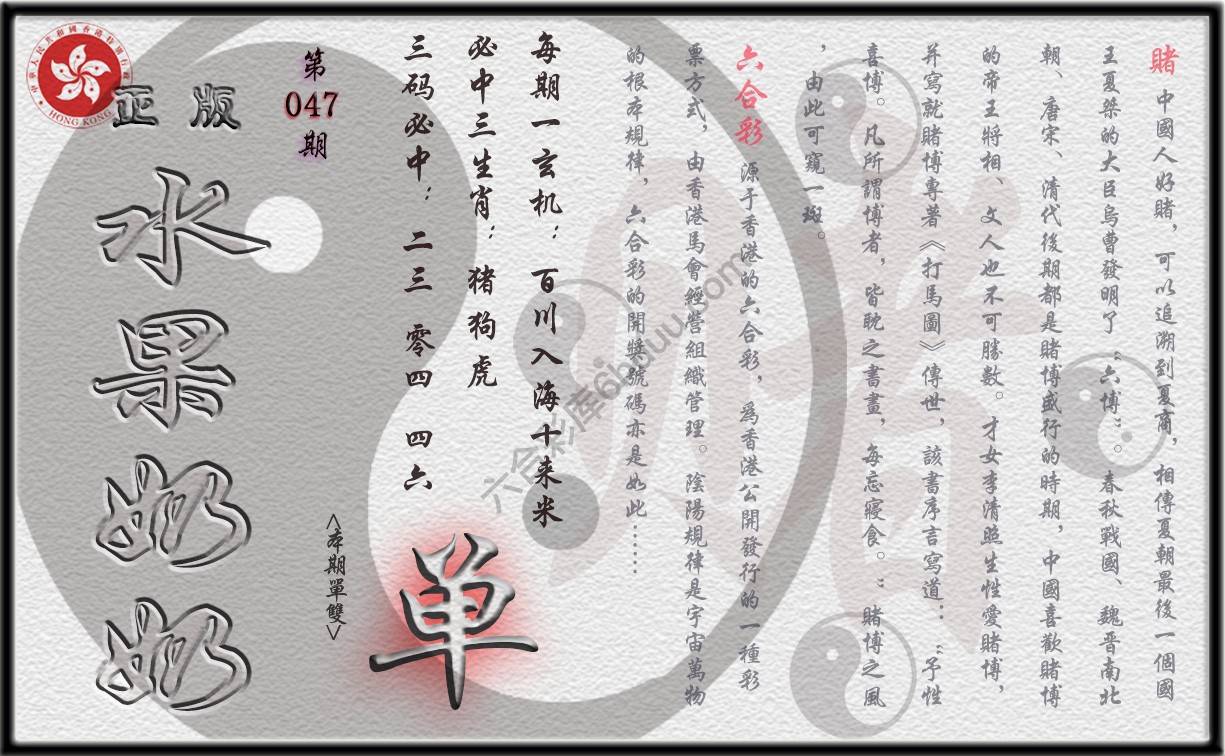 賭 中國人好賭，可以追溯到夏商，相傳夏朝最後一個國
王夏桀的大臣烏曹發明了“六博”。春秋戰國、魏晋南北
朝、唐宋、清代後期都是賭博盛行的時期，中國喜歡賭博
的帝王將相、文人也不可勝數。才女李清照生性愛賭博，
并寫就賭博專著《打馬圖》傳世，該書序言寫道：“予性
喜博。凡所謂博者，皆耽之書畫，每忘寢食。”賭博之風
，由此可窺一斑。
六合彩 源于香港的六合彩，爲香港公開發行的一種彩
票方式，由香港馬會經營組織管理。陰陽規律是宇宙萬物
的根本規律，六合彩的開獎號碼亦是如此……
每期一玄机：百川入海十来米
必中三生肖：猪狗虎
三码必中：二三 零四 四六
单
<本期單雙>
第
047
期
正版
水果奶奶
中華人民共和國香港特別行政區
HONG KONG
六合彩库6hduu.com